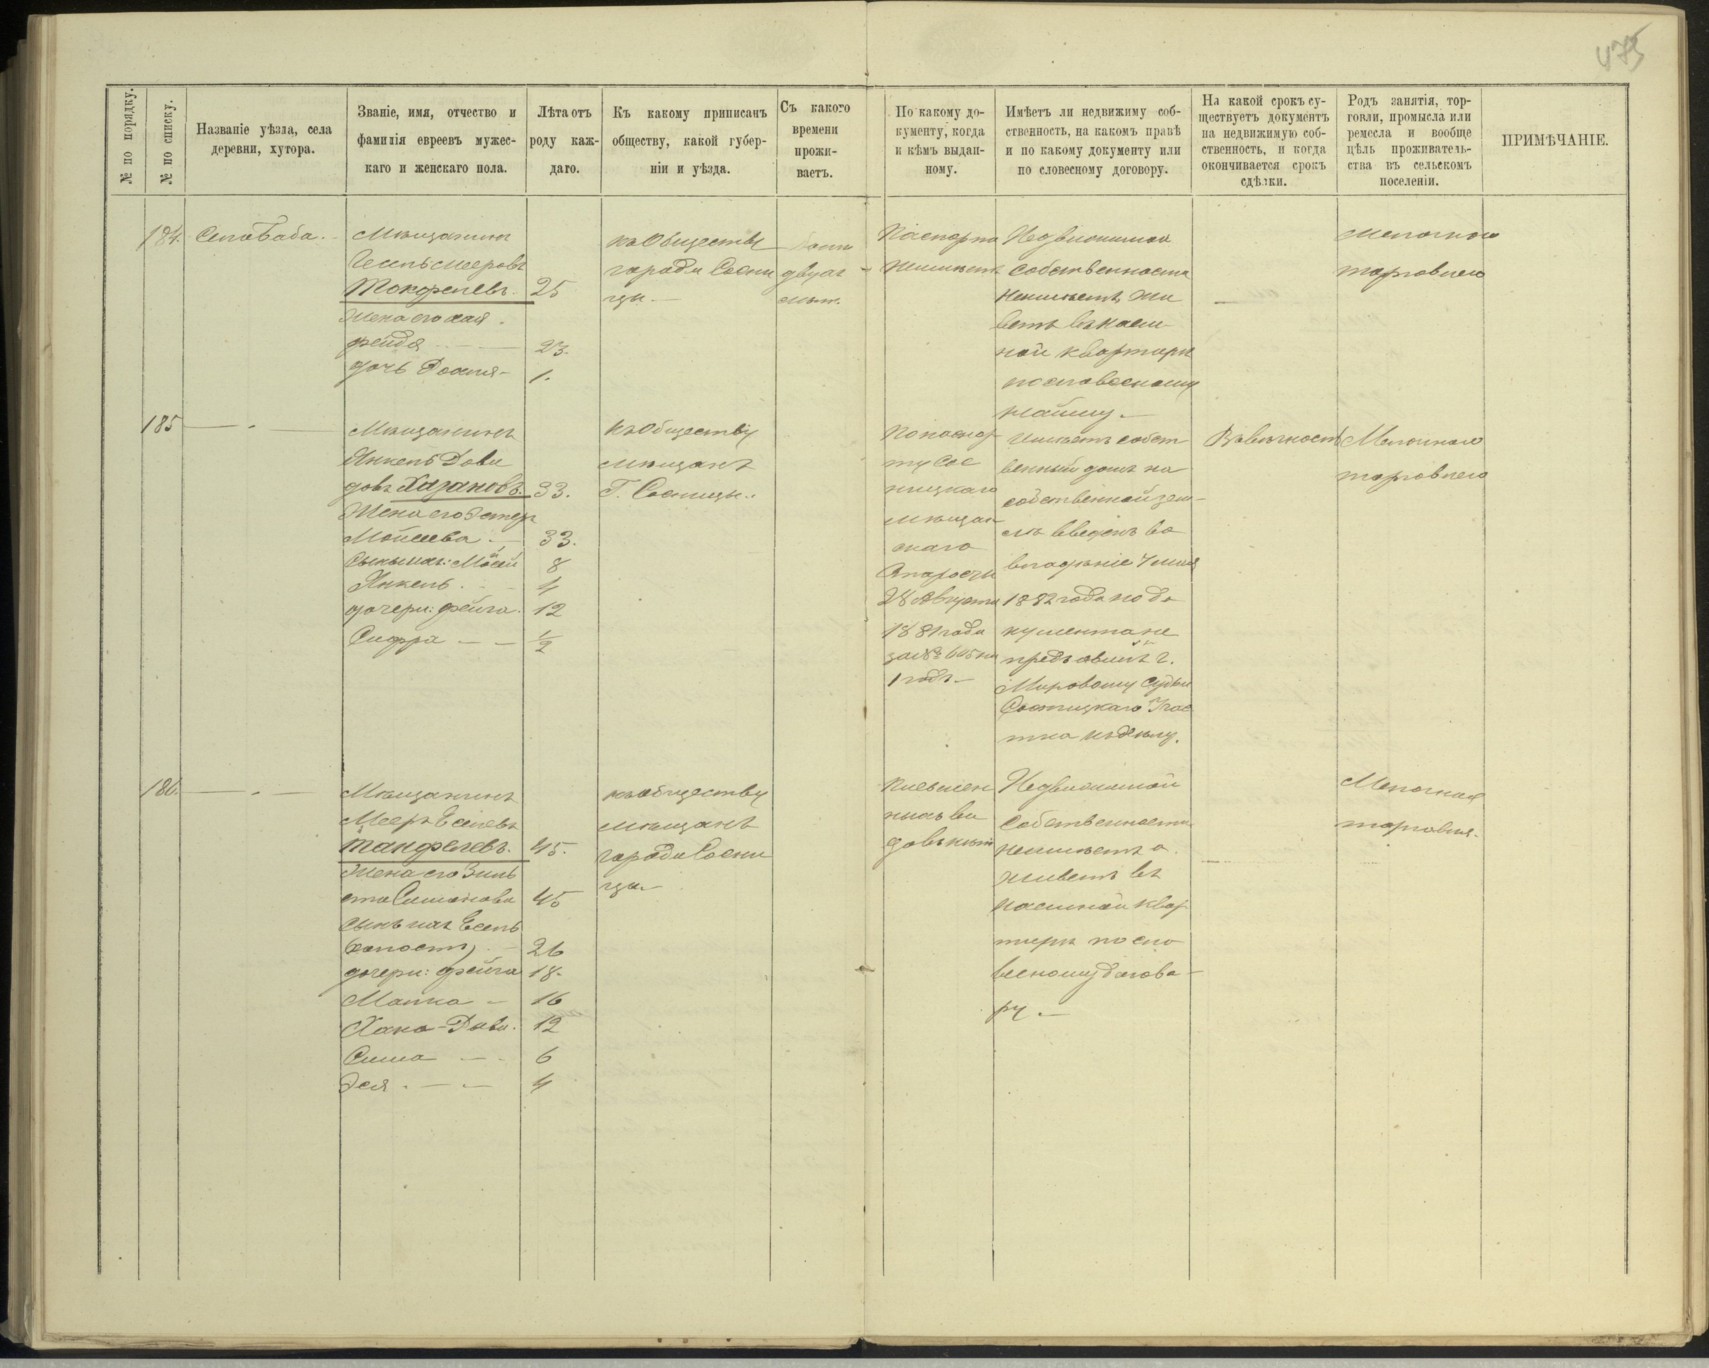 475
№ по порядку.
№ по списку.
Названіе уѣзда, села
деревни, хутора.
Званіе, имя, отчество и
фамилія евреевъ мужес-
каго и женскаго пола.
Лѣта отъ
роду каж-
даго.
Къ какому приписанъ
обществу, какой губер-
ніи и уѣзда.
Съ какого
времени
прожи-
ваетъ.
По какому до-
кументу, когда
и кѣмъ выдан-
ному.
Имѣетъ ли недвижиму соб-
ственность, на какомъ правѣ
и по какому документу или
по словесному договору.
На какой срокъ су-
ществуетъ документъ
на недвижимую соб-
ственность, и когда
окончивается срокъ
сдѣлки.
Родъ занятія, тор-
говли, промысла или
ремесла и вообще
цѣль проживатель-
ства въ сельскомъ
поселеніи.
ПРИМѢЧАНІЕ.
184. Село Баба.
Мѣщанинъ
25
Жена его Хая
фейда 23.
дочь 1.
къ Обществу
города Сосни
цы.
двухъ
лѣт.
Паспорта
Неимѣетъ
Недвижимой
собственности
Неимѣетъ, жи
ветъ въ наем
ной квартирѣ
по словесному
найму.
мелочною
торговлею
185
Мѣщанинъ
Янкель Дови
довъ Хазановъ. 33.
Жена его Эстер
Мойсеева 33.
сыновья: Мосей 8
Янкель. 4
дочери: фейга. 12
Сифра 1/2
Къ Обществу
мѣщанъ
Г. Сосницы.
По паспор
ту Сос
ницкаго
мѣщан
скаго
Старосты
28 Августа
1881 года
1 годъ
Имѣетъ собст
венный домъ на
собственной зем-
лѣ введенъ во
владѣніе
1882 года но до
кумента не
предъявилъ г.
Мировому Судьи
Сосницкаго Учас
тка къ дѣлу.
Въ вѣчность
Мелочною
торговлею
186.
Мѣщанинъ
Мееръ Еселевъ
Танфелевъ. 45.
Жена его Зиль
Симонова 45
сынъ ихъ Есель
(холостъ) 26
дочери: фейга 18.
Малка 16
Хана-Доба. 12
Сима 6
Эся 4
къ обществу
мѣщанъ
города Сосни
цы.
Письмен
наго ви
да нѣтъ
Недвижимой
Собственности
неимѣетъ а
живетъ въ
наемной квар
тирѣ по сло
весному догово-
ру.
Мелочная
торговля.